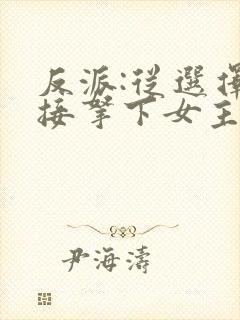 反派:從選擇
接拏下女主
尹海濤